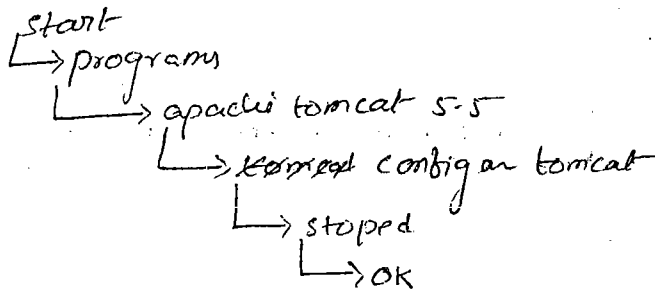 start
programs
apachi tomcat 5.5
configar tomcat
stoped
OK